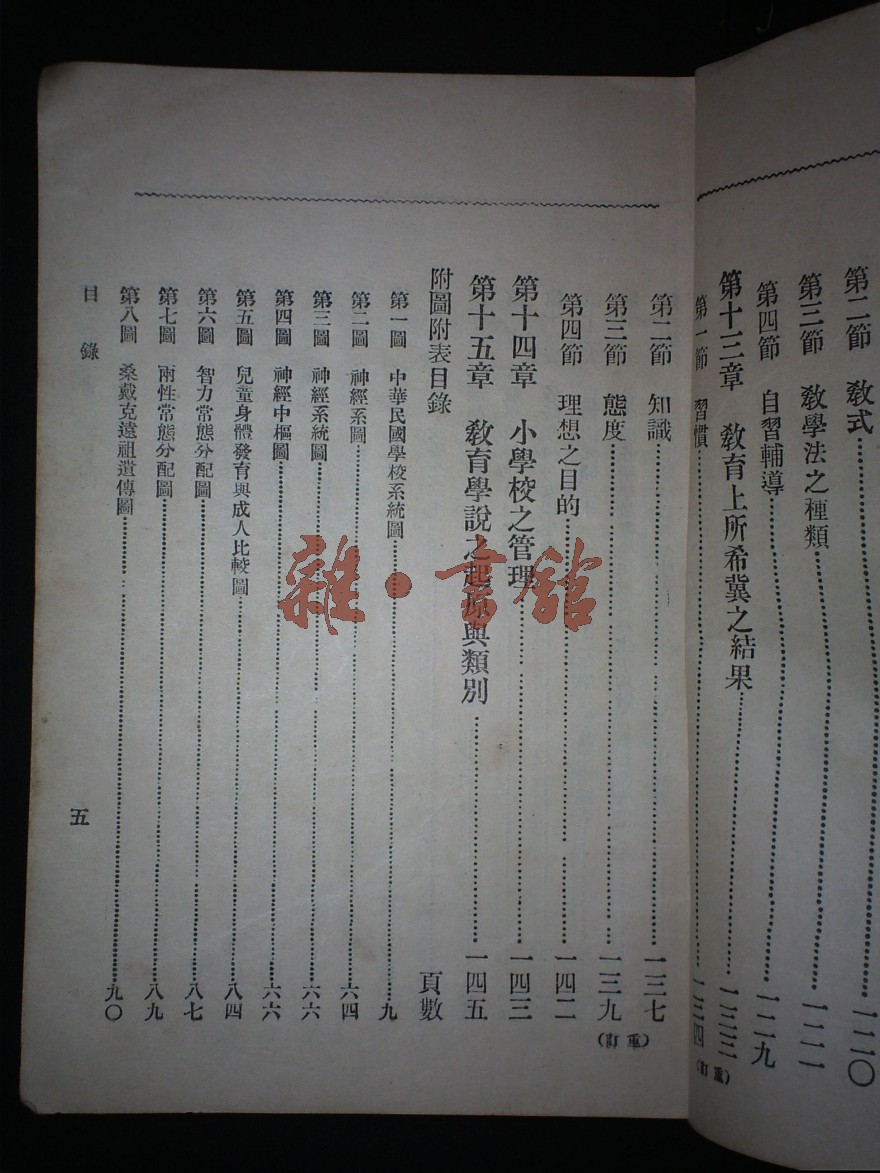 第二節　敎式………一二〇
第三節　敎學法之種類………一二一
第四節　自習輔導………一二九
第十三章　敎育上所希冀之結果………一三三
第一節　習慣………一三四
(重訂)
第二節　知識………一三七
第三節　態度………一三九
(重訂)
第四節　理想之目的………一四二
第十四章　小學校之管理………一四三
第十五章　敎育學說之起源與類別………一四五
附圖附表目錄　頁數
第一圖　中華民國學校系統圖………九
第二圖　神經系圖………六四
第三圖　神經系統圖………六六
第四圖　神經中樞圖………六六
第五圖　兒童身體發育與成人比較圖………八四
第六圖　智力常態分配圖………八七
第七圖　兩性常態分配圖………八九
第八圖　桑戴克遠祖遺傳圖………九〇
目錄　五
雜·書館